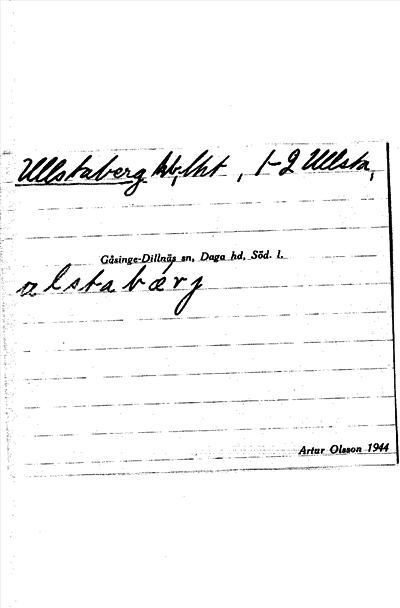 Ullstaberg, hb, lht, 1-2 Ullsta,
Gåsinge-Dillnäs sn, Daga hd, Söd. l.
ulstabærj
Artur Olsson 1944